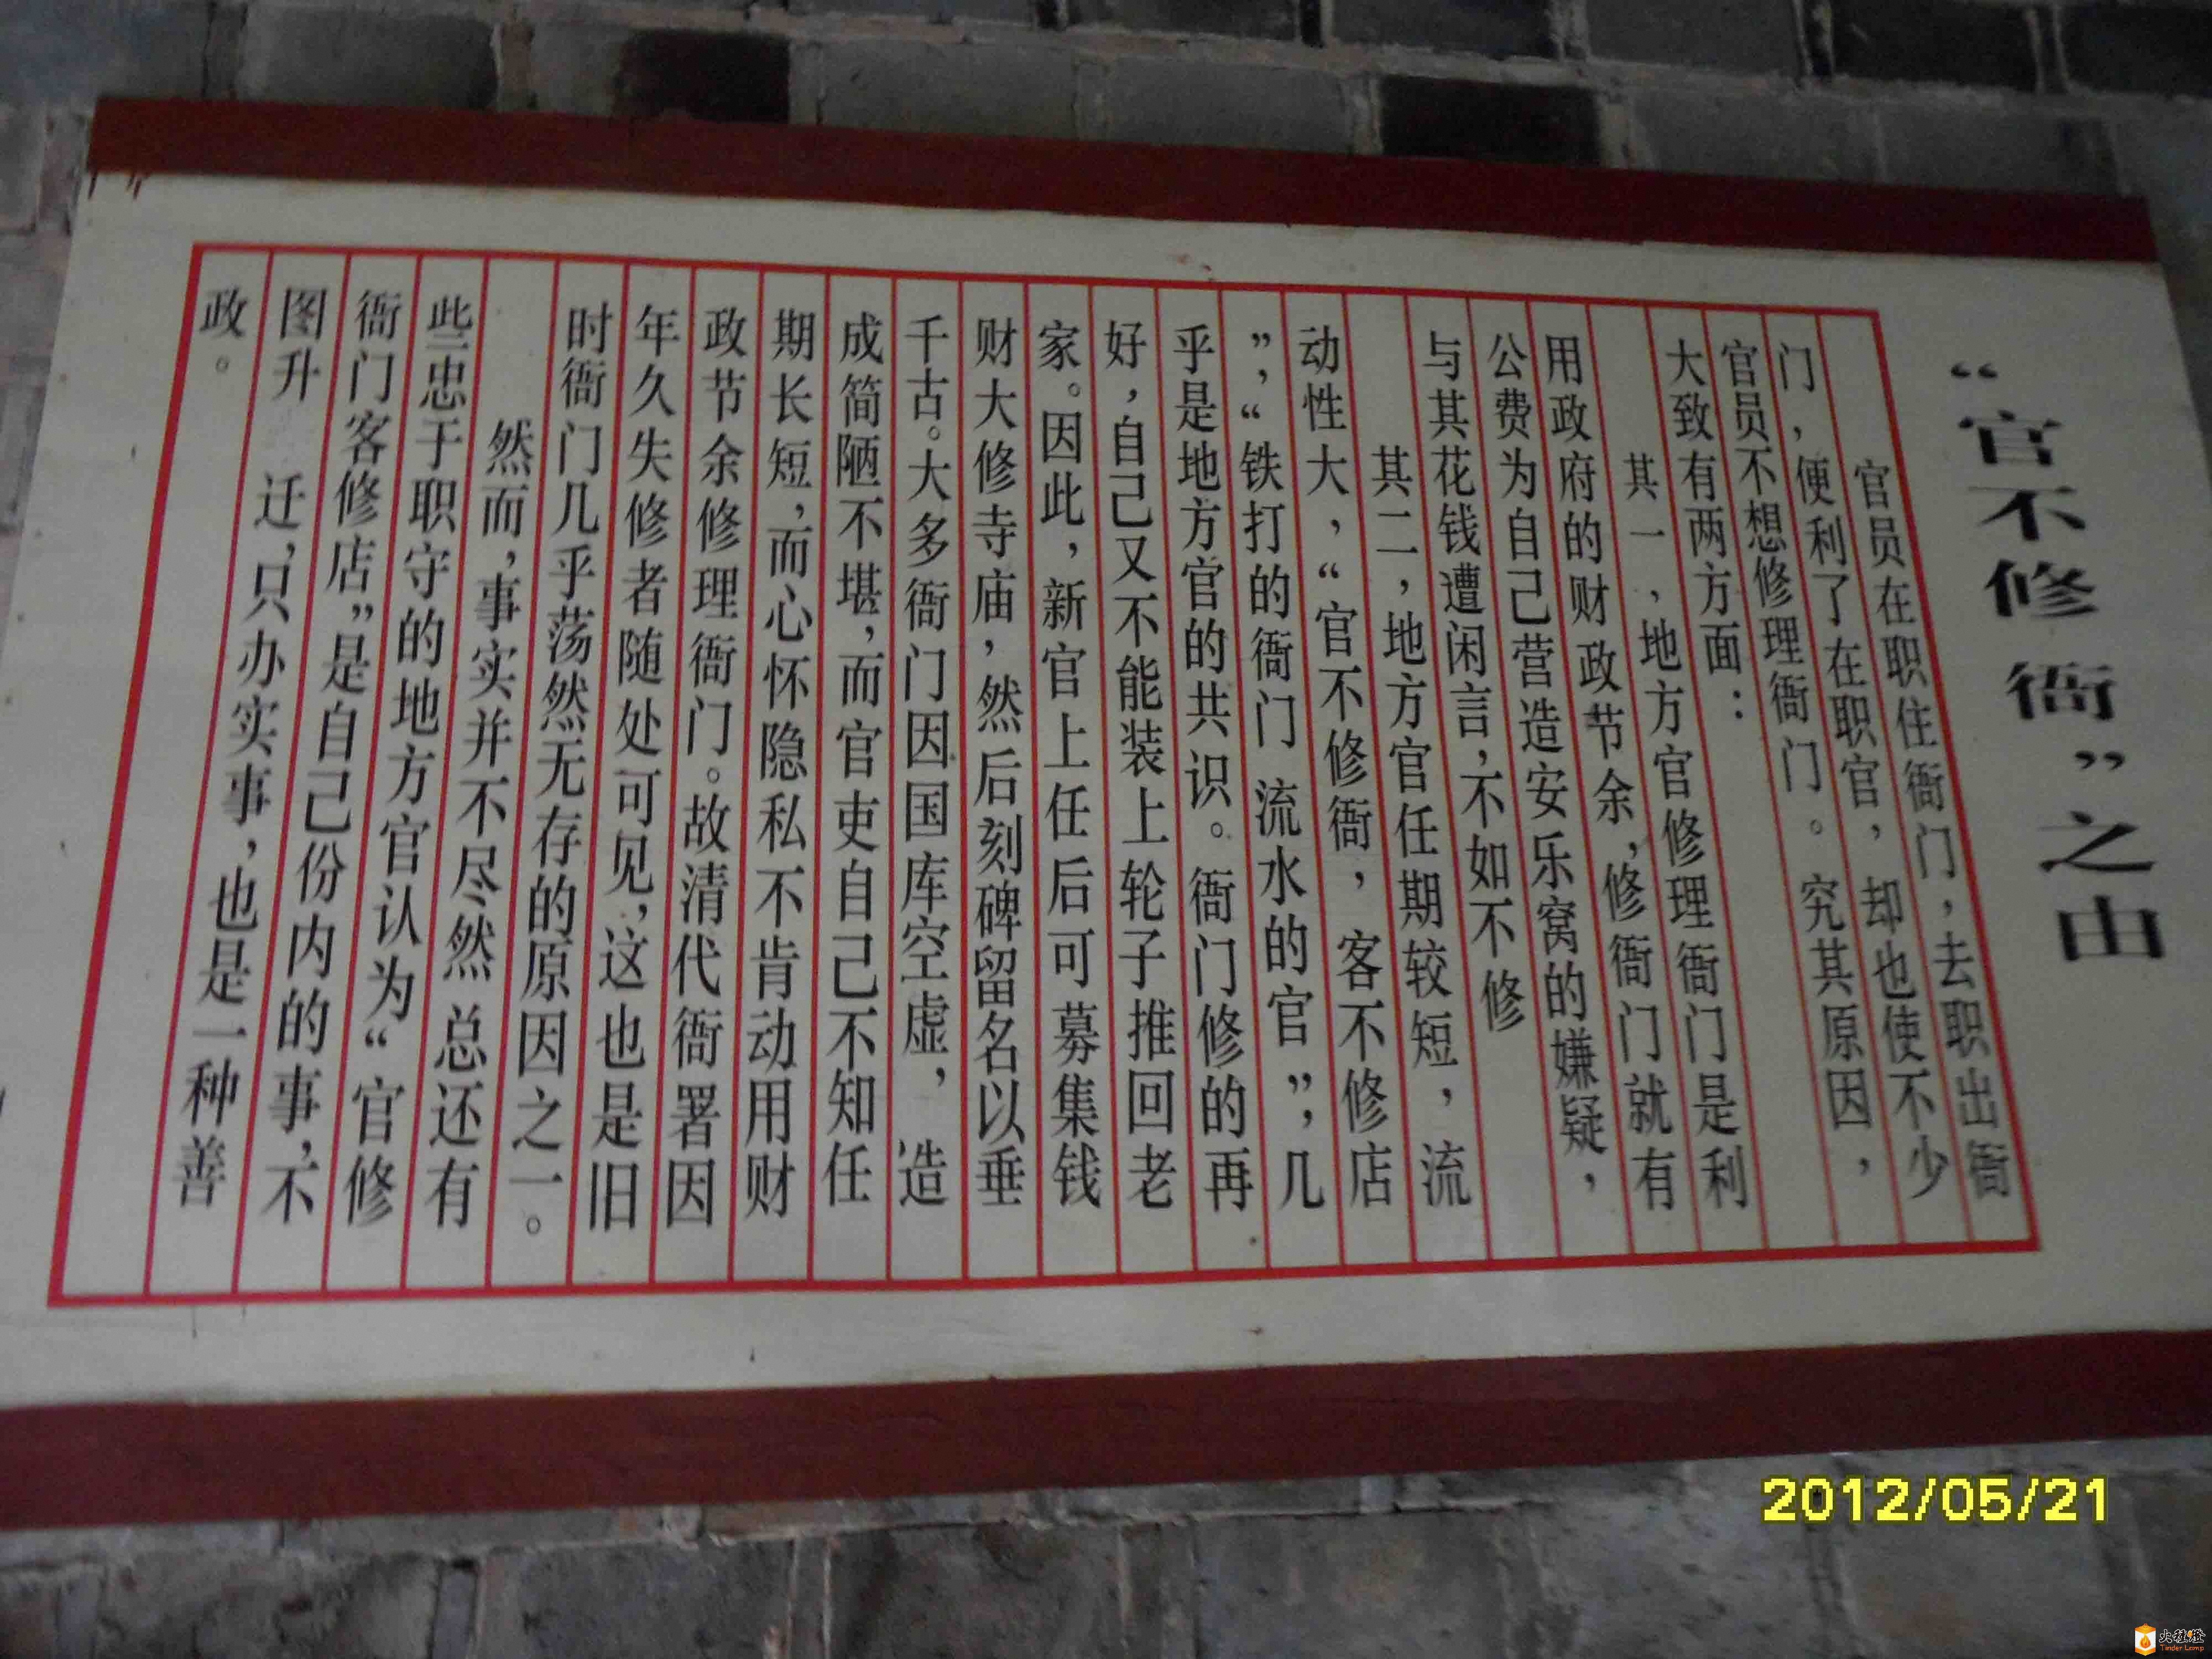 “官不修衙”之由
官员在职住衙门，去职出衙
门，便利了在职官，却也使不少
官员不想修理衙门。究其原因，
大致有两方面：
其一，地方官修理衙门是利
用政府的财政节余，修衙门就有
公费为自己营造安乐窝的嫌疑，
与其花钱遭闲言，不如不修
其二，地方官任期较短，流
动性大，“官不修衙，客不修店
”，“铁打的衙门 流水的官”，几
乎是地方官的共识。衙门修的再
好，自己又不能装上轮子推回老
家。因此，新官上任后可募集钱
财大修寺庙，然后刻碑留名以垂
千古。大多衙门因国库空虚，造
成简陋不堪，而官吏自己不知任
期长短，而心怀隐私不肯动用财
政节余修理衙门。故清代衙署因
年久失修者随处可见，这也是旧
时衙门几乎荡然无存的原因之一。
然而，事实并不尽然 总还有
些忠于职守的地方官认为“官修
衙门客修店”是自己份内的事，不
图升 迁，只办实事，也是一种善
政。
2012/05/21
火种灯
Tinder Lamp